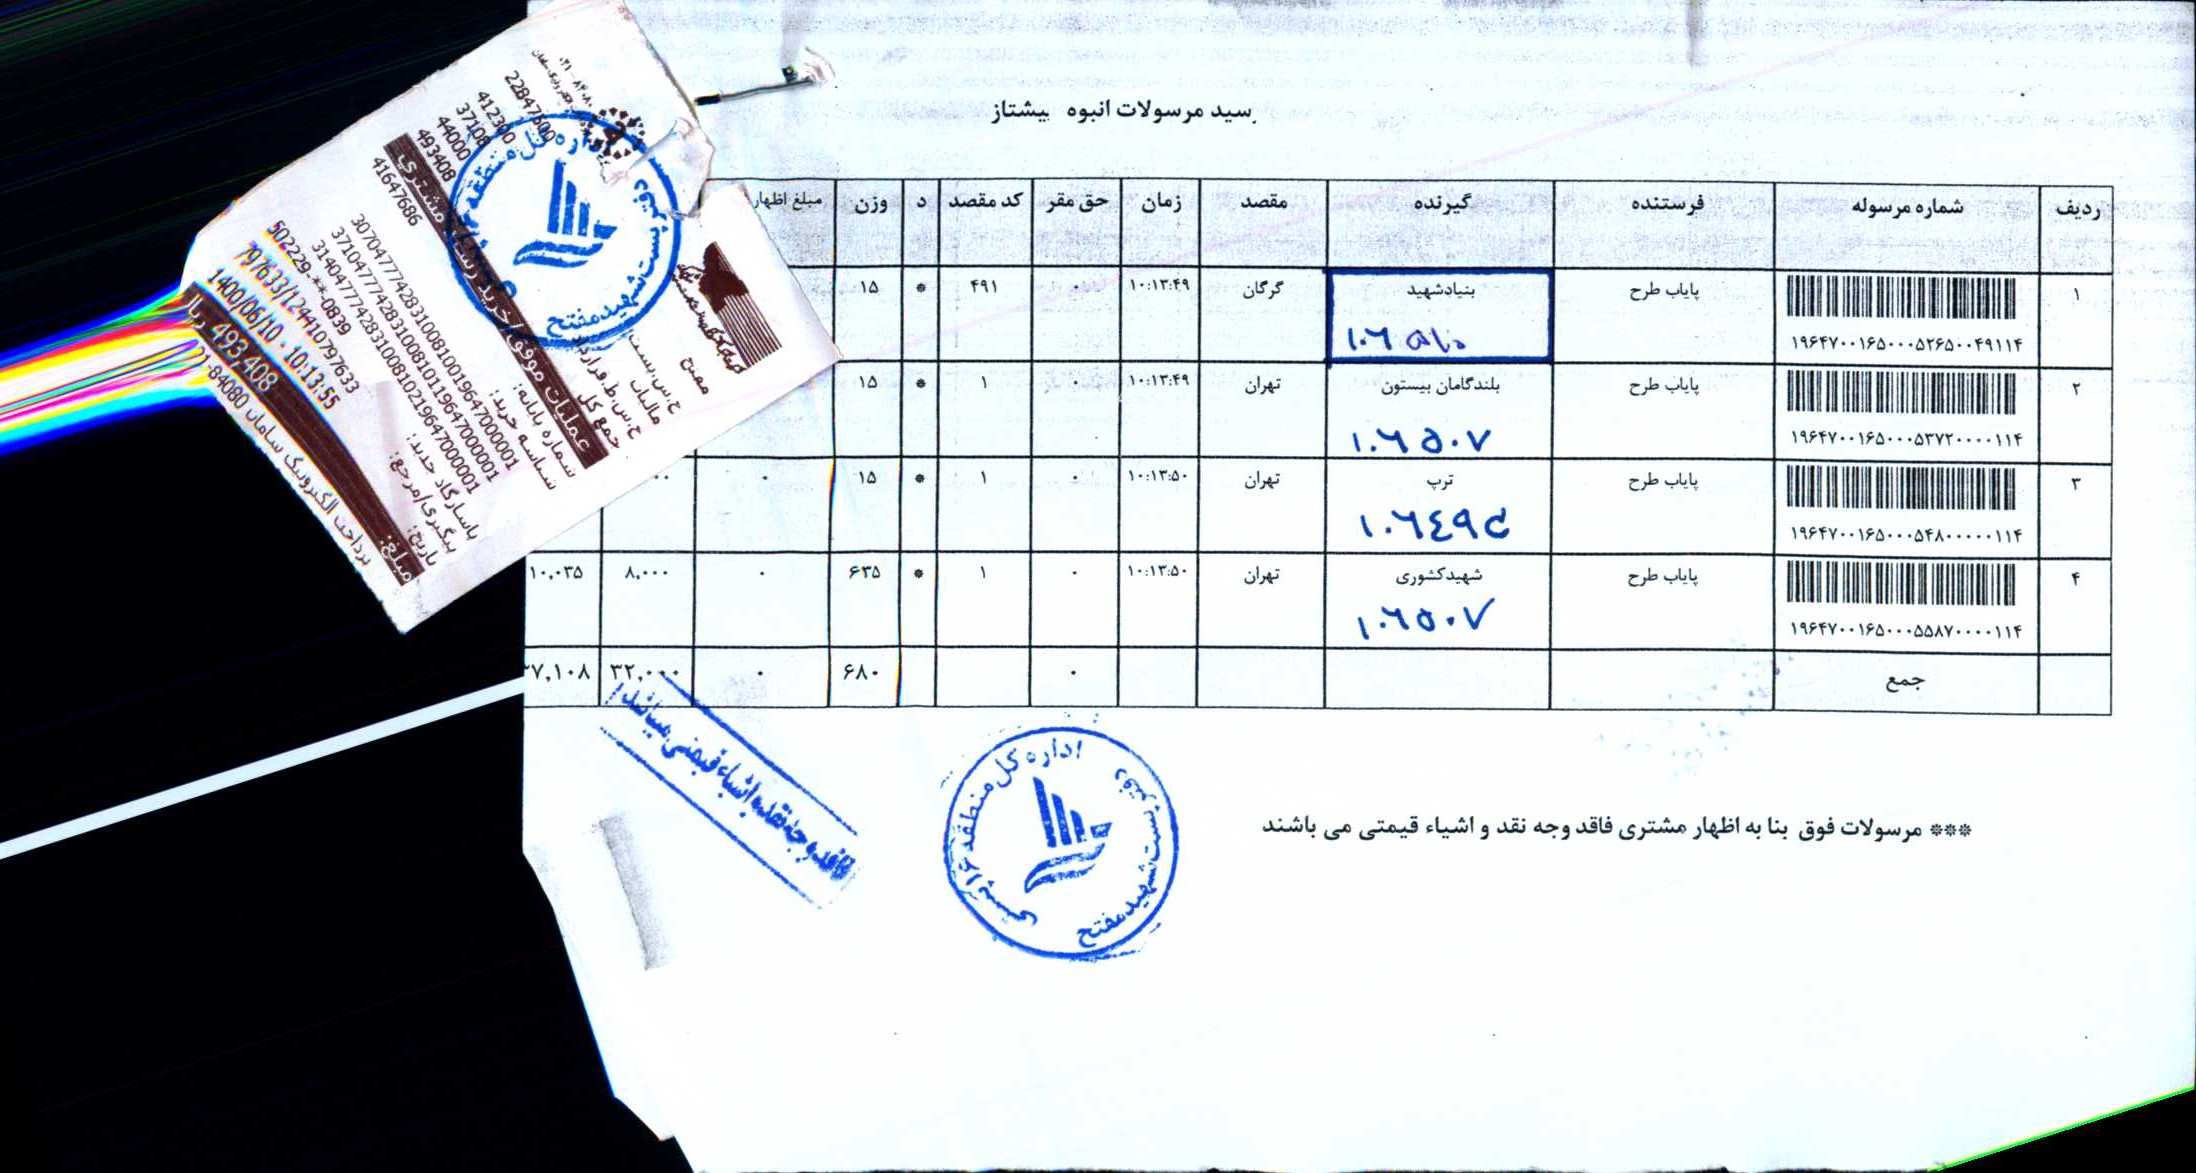 رسید مرسولات انبوه پیشتاز
ردیف شماره مرسوله فرستنده گیرنده مقصد زمان حق مقر کد مقصد د وزن مبلغ اظهار
۱ پایاب طرح بنیادشهید گرگان ۱۰:۱۳:۴۹ ۰ ۴۹۱ * ۱۵
۱۹۶۴۷۰۰۱۶۵۰۰۰۵۲۶۵۰۰۴۹۱۱۴
۲ پایاب طرح بلندگامان بیستون تهران ۱۰:۱۳:۴۹ ۰ ۱ * ۱۵
۱۹۶۴۷۰۰۱۶۵۰۰۰۵۳۷۲۰۰۰۰۱۱۴ ۱۰۶۵۰۷
۳ پایاب طرح ترپ تهران ۱۰:۱۳:۵۰ ۰ ۱ * ۱۵ ۰
۱۹۶۴۷۰۰۱۶۵۰۰۰۵۴۸۰۰۰۰۰۱۱۴
۴ پایاب طرح شهیدکشوری تهران ۱۰:۱۳:۵۰ ۰ ۱ * ۶۳۵ ۰ ۸,۰۰۰ ۱۰,۰۳۵
۱۹۶۴۷۰۰۱۶۵۰۰۰۵۵۸۷۰۰۰۰۱۱۴ ۱۰۶۵۰۷
جمع ۰ ۶۸۰ ۰ ۳۲,۰۰۰ ۷,۱۰۸
*** مرسولات فوق بنا به اظهار مشتری فاقد وجه نقد و اشیاء قیمتی می باشند
اداره کل منطقه ۶ پستی
دفتر پست شهید مفتح
فاقد وجه نقد و اشیاء قیمتی میباشد
اداره کل منطقه
دفتر پست شهید مفتح
مفتح
ح.س.پست: 412300
مالیات: 37108
ح.س.ط.قرارداد: 44000
جمع کل: 493408
عملیات موفق خرید رسید مشتری
شماره پایانه: 41647686
شناسه خرید:
3070477742831008100196470000​01
371047774283100810119647000001
314047774283100810219647000001
پاسارگاد جدید: 502229-**-0839
پیگیری/مرجع: 797633/124410797633
تاریخ: 1400/06/10 - 10:13:55
مبلغ: 493,408 ریال
پرداخت الکترونیک سامان 84080-021